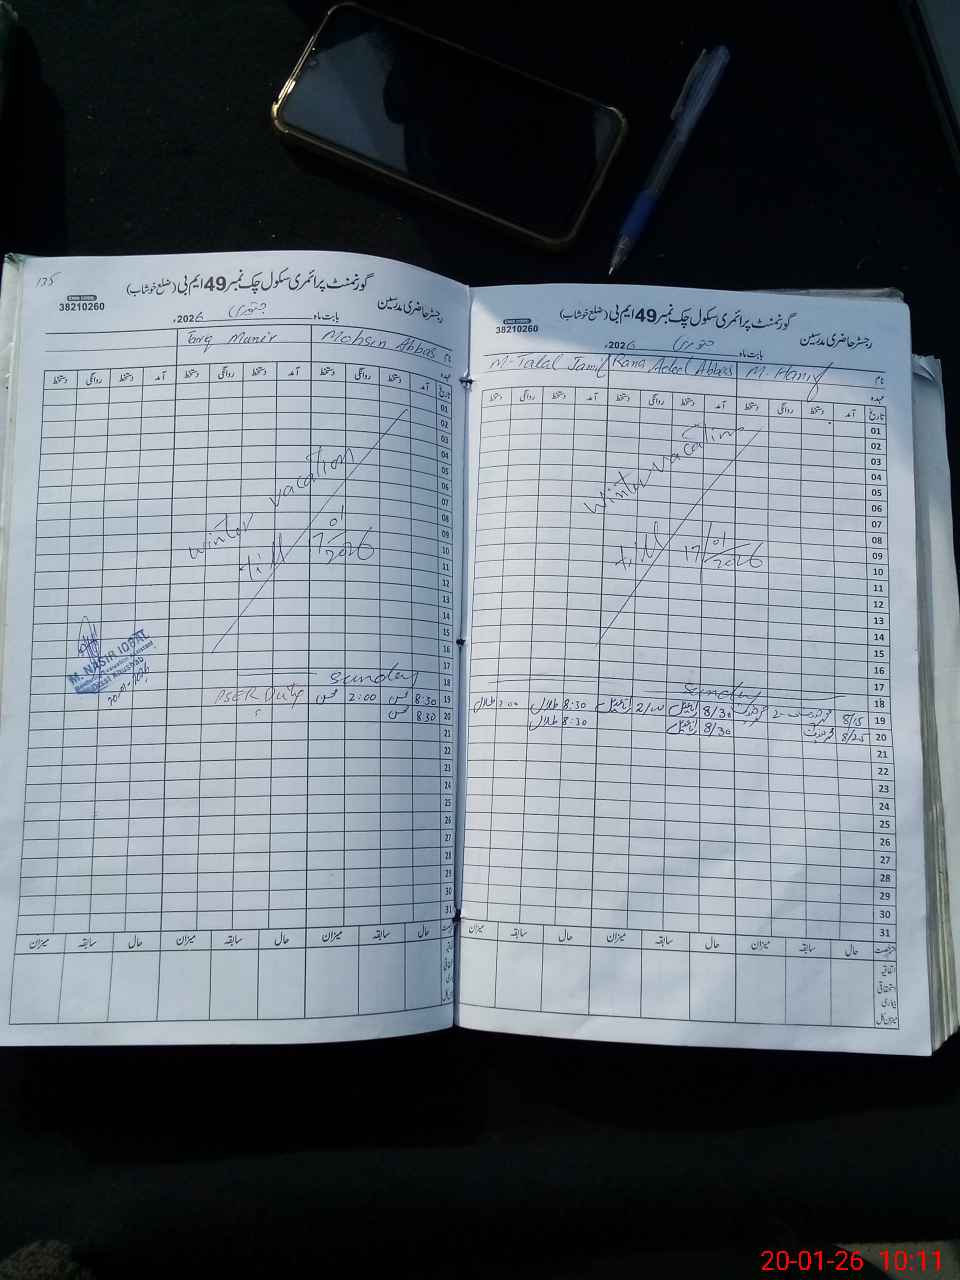 135
گورنمنٹ پرائمری سکول چک نمبر 49 ایم بی (ضلع خوشاب)
EMIS CODE:
38210260
رجسٹر حاضری مدرسین
بابت ماہ جنوری 2026ء
Tariq Manir Mohsin Abbas
تاریخ آمد دستخط روانگی دستخط آمد دستخط روانگی دستخط آمد دستخط روانگی دستخط
01
02
03
04
05
06
07
08
09
10
11
12
13
14
15
16
17
18
19
20
21
22
23
24
25
26
27
28
29
30
31
winter vacation
till 17/01/2026
Sunday
PSER Duty 2:00 8:30
8:30
M. NASIR IQBAL
20-01-2026
حال سابقہ میزان حال سابقہ میزان حال سابقہ میزان
گورنمنٹ پرائمری سکول چک نمبر 49 ایم بی (ضلع خوشاب)
EMIS CODE:
38210260
رجسٹر حاضری مدرسین
بابت ماہ جنوری 2026ء
نام
M-Talal Jamil Rana Adeel Abbas M. Hanif
عہدہ
تاریخ آمد دستخط روانگی دستخط آمد دستخط روانگی دستخط آمد دستخط روانگی دستخط
01
02
03
04
05
06
07
08
09
10
11
12
13
14
15
16
17
18
19
20
21
22
23
24
25
26
27
28
29
30
31
winter vacation
till 17/01/2026
Sunday
2:00 طلال 8:30 طلال 2/00 8/30 8/15
8:30 طلال 8/30 8/25
حال سابقہ میزان حال سابقہ میزان حال سابقہ میزان
اتفاقیہ
استحقاقی
بیماری
میزان کل
20-01-26 10:11